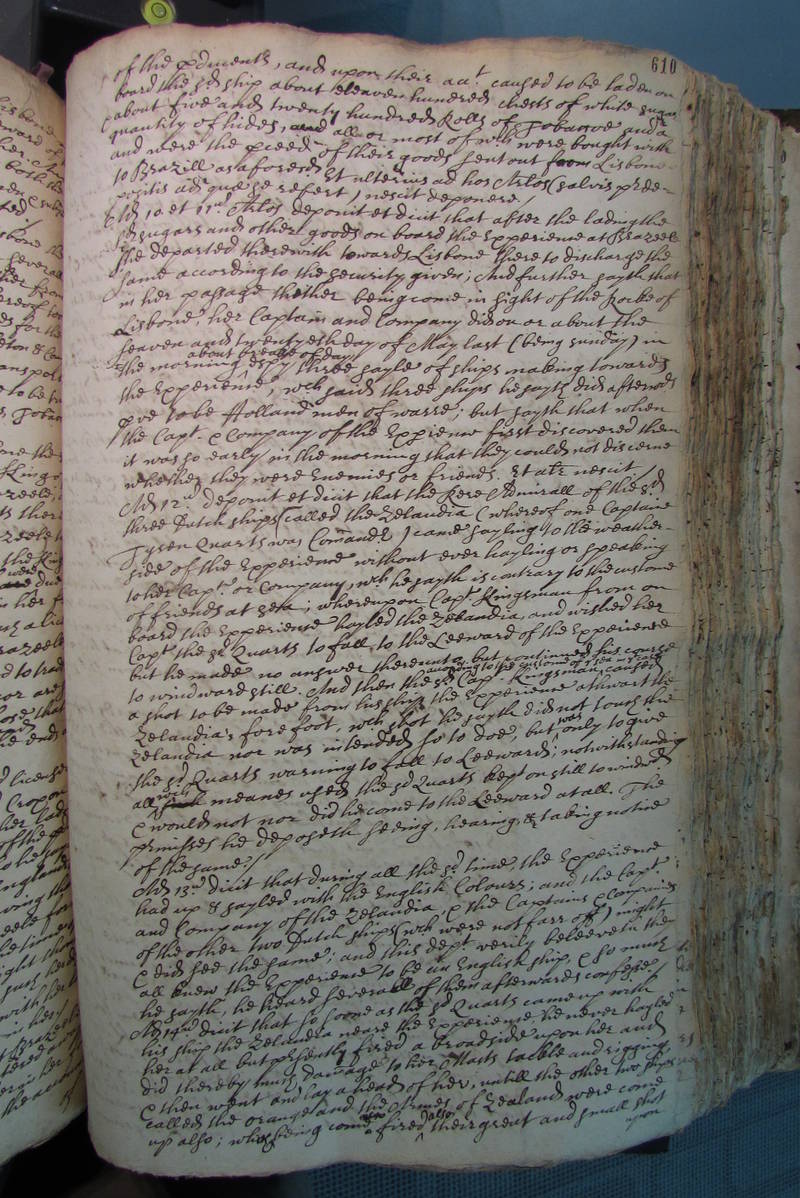 610
of the p'dments, and upon their acct. caused to be laden on
board the sd ship about eleaven hundred chests of white sugar
about five and twenty hundred Rolls of Tobaccoe and a
quantity of hides, and all or most of wch were bought with
and were the pceed of their goods sent out from Lisbone
to Brazill as aforesd Et ulterius ad hos Arlos (salvis prde-
positis ad quæ se refert) nescit deponere /
Ad 10 et 11um Arlos deponit et dicit that after the lading the
sd sugars and other goods on board the Experience at Brazeele
she departed therewith towards Lisbone there to discharge the
same according to the security given; And further sayth that
in her passage thether being come in sight of the Rocke of
Lisbone, her Captain and Company did on or about the
seaven and twentyeth day of May last (being sunday) in
the morning about breake of day espy three sayle of ships making towards
the Experience, wch said three ships he sayth did afterwds
pve to be Holland men of warre; but sayth that when
the Capt. & Company of the Expience first discovered them
it was so early in the morning that they could not discerne
whether they were Enemies or friends. Et alr nescit /
Ad 12um deponit et dicit that the Rere Admirall of the sd
three Dutch ships (called the Zelandia (whereof one Captaine
Tysen Quarts was Comander) came sayling to the weather-
side of the Experience without ever hayling or speaking
to her Capt. or Company, wch he sayth is contrary to the custome
of friends at sea; whereupon Capt. Kingsman from on
board the Experience hayled the Zelandia, and wished her
Capt the sd Quarts to fall to the Leeward of the Experience
but he made no answer thereunto, but continued his course
to windward still. And then the sd Capt. Kingsman according to the custome of sea in such caused
a shot to be made from his ship the Experience athwart the
Zelandia's forefoot, wch shot he sayth did not touch the
Zelandia nor was intended so to doe, but was only to give
the sd Quarts warning to fall to Leeward; notwithstanding
all wch meanes used the sd Quarts kept on still to windwd
& would not nor did he come to the Leeward at all. The
prmisses he deposeth seeing, hearing, & taking notice
of the same. /
Ad 13um dicit that during all the sd time, the Experience
had up & sayled with the English Colours; and the Capt.
and Company of the Zelandia & the Captains & Companies
of the other two Dutch ships (wch were not farr off) might
& did see the same; and this dept verily beleeveth the
all knew the Experience to be an English ship, & so much
he sayth, he heard severall of them afterwards confesse /
Ad 14um dicit that so soone as the sd Quarts came up with
his ship the Zelandia neare the Experience he never hayled
her at all but psently fired a Broadside upon her and
did thereby much damage to her Masts tackle and rigging
& then went and lay a head of her, untill the other two ships
called the Orange and the Armes of Zealand were come
up also; who being come fired also their great and small shot
upon